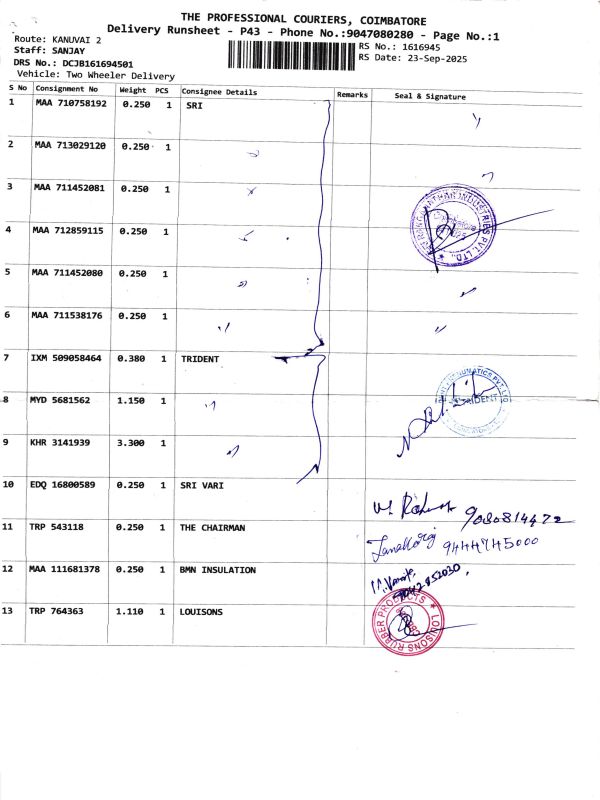 THE PROFESSIONAL COURIERS, COIMBATORE
Delivery Runsheet - P43 - Phone No.:9047080280 - Page No.:1
Route: KANUVAI 2
RS No.: 1616945
Staff: SANJAY
RS Date: 23-Sep-2025
DRS No.: DCJB161694501
Vehicle: Two Wheeler Delivery
S No Consignment No Weight PCS Consignee Details Remarks Seal & Signature
1 MAA 710758192 0.250 1 SRI
2 MAA 713029120 0.250 1
3 MAA 711452081 0.250 1
4 MAA 712859115 0.250 1
5 MAA 711452080 0.250 1
6 MAA 711538176 0.250 1
7 IXM 509058464 0.380 1 TRIDENT
8 MYD 5681562 1.150 1
TRIDENT
9 KHR 3141939 3.300 1
10 EDQ 16800589 0.250 1 SRI VARI
9080814472
11 TRP 543118 0.250 1 THE CHAIRMAN
9444745000
12 MAA 111681378 0.250 1 BMN INSULATION
13 TRP 764363 1.110 1 LOUISONS
LOUISONS RUBBER PRODUCTS